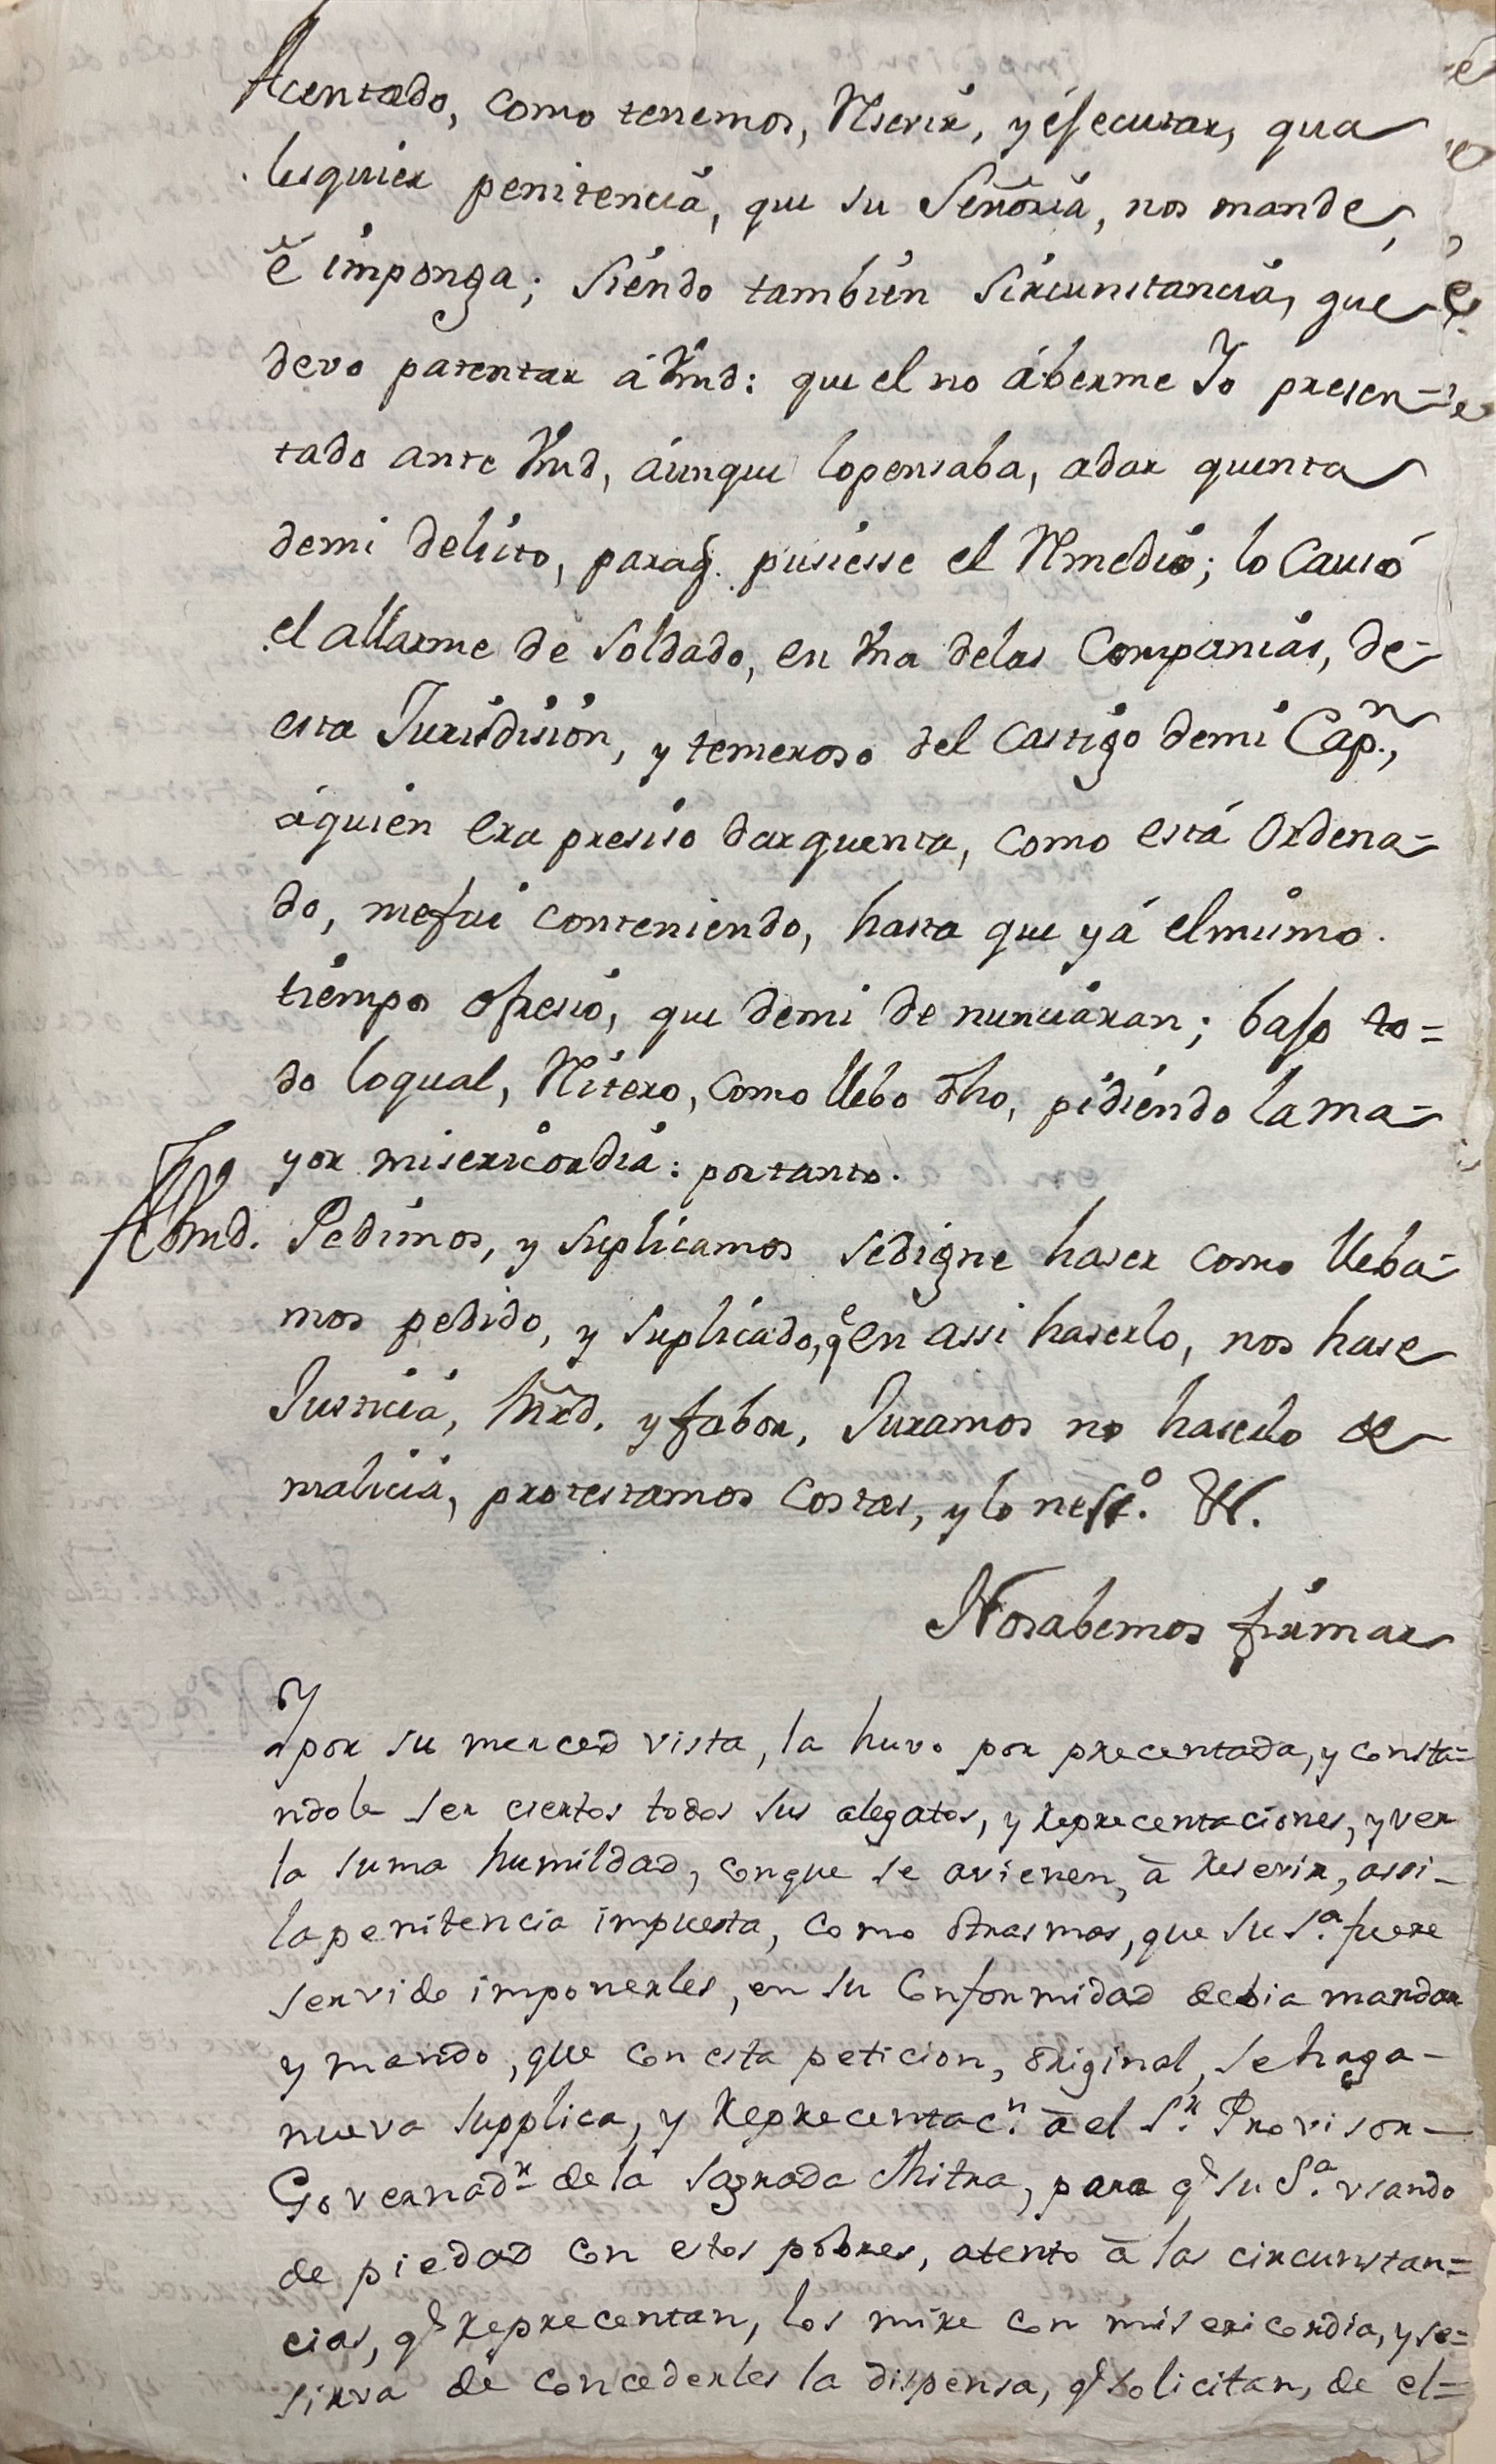 Acentado, como tenemos, Reserir, y éjecutar, qua
lesquier penitencia, que su Señoria, nos mande,
é imponga; Siéndo también Sircunstancia, que
devo patentar á Vmd: que el no áberme Yo presen=
tado ante Vmd, áunque lo pensaba, adar quenta
demi delicto, paraq. pusiesse el Remedio; lo Causó
el allarme de Soldado, en Vna delas Companias, de-
esta Jurisdision, y temeroso del Castigo demi Cap.n,
áquién era presiso dar quenta, como está Ordena=
do, mefui conteniendo, hasta que yá elmismo
tiémpo ofresió, que demi de nunciáran; bajo to=
do loqual, Ritero, como llebo dho, pidiéndo la ma=
yor misericordia: portanto.
A Vmd. Pedimos, y Suplicamos sedigne haser como lleba=
mos pedido, y Suplicado, qe en assi haserlo, nos hase
Justicia, Mrd. y fabor, Juramos no haserlo de
malicia, protestamos Costas, y lo nesso. &.
Nosabemos firmar
Y por su merced vista, la huvo por precentada, y consta=
ndole ser ciertos todos sus alegatos, y Reprecentaciones, y ver
la suma humildad, conque se avienen, à Reserir, assi-
lapenitencia impuesta, como otrasmas, que su Sa. fuere
servido imponerles, en su Conformidad debia mandar
y mando, que con esta peticion, original, se haga-
nueva supplica, y Reprecentacn. à el Sr. Provisor-
Governadr de la Sagrada Mitra, para qe su Sa. usando
de piedad con estos pobres, atento à las circunstan=
cias, qe Reprecentan, los mire con misericordia, y se=
sirva de concederles la dispensa, qe solicitan, de el=